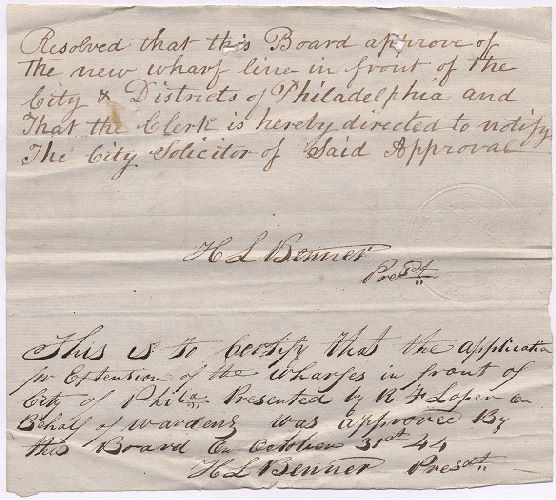 Resolved that this Board approve of
The new wharf line in front of the
City & Districts of Philadelphia and
That the Clerk is hereby directed to notify
The City Solicitor of Said Approval
H L Benner
Presdt
This is to Certify that the application
for Extension of the wharfes in front of
City of Phila Presented by R F Loper on
Behalf of wardens was approved By
this Board On October 31st 44
H L Benner Presdt